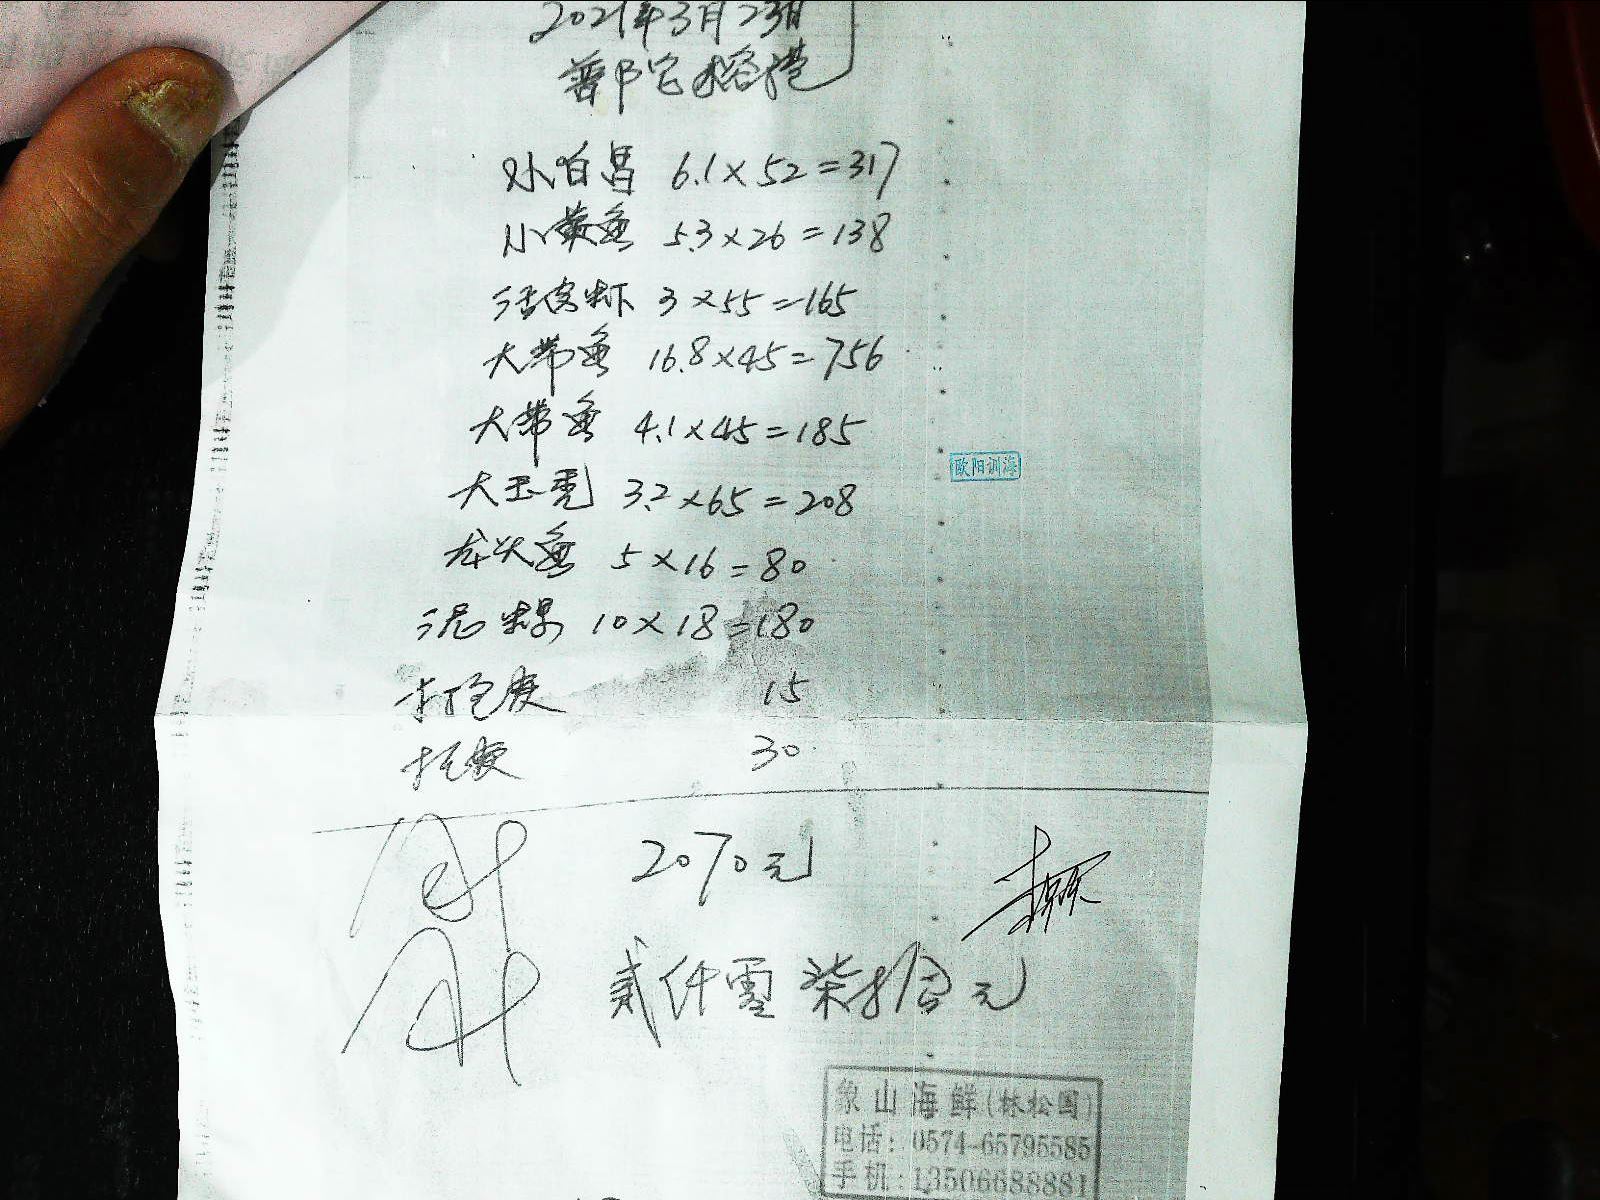 2021年3月23日
普陀稻港
小白昌 6.1×52=317
小黄鱼 5.3×26=138
活白虾 3×55=165
大带鱼 16.8×45=756
大带鱼 4.1×45=185
大玉秃 3.2×65=208
龙头鱼 5×16=80
泥螺 10×18=180
打包费 15
托费 30
2070元
贰仟零柒拾元
欧阳训海
象山海鲜(林松国)
电话:0574-65795585
手机:13506688881